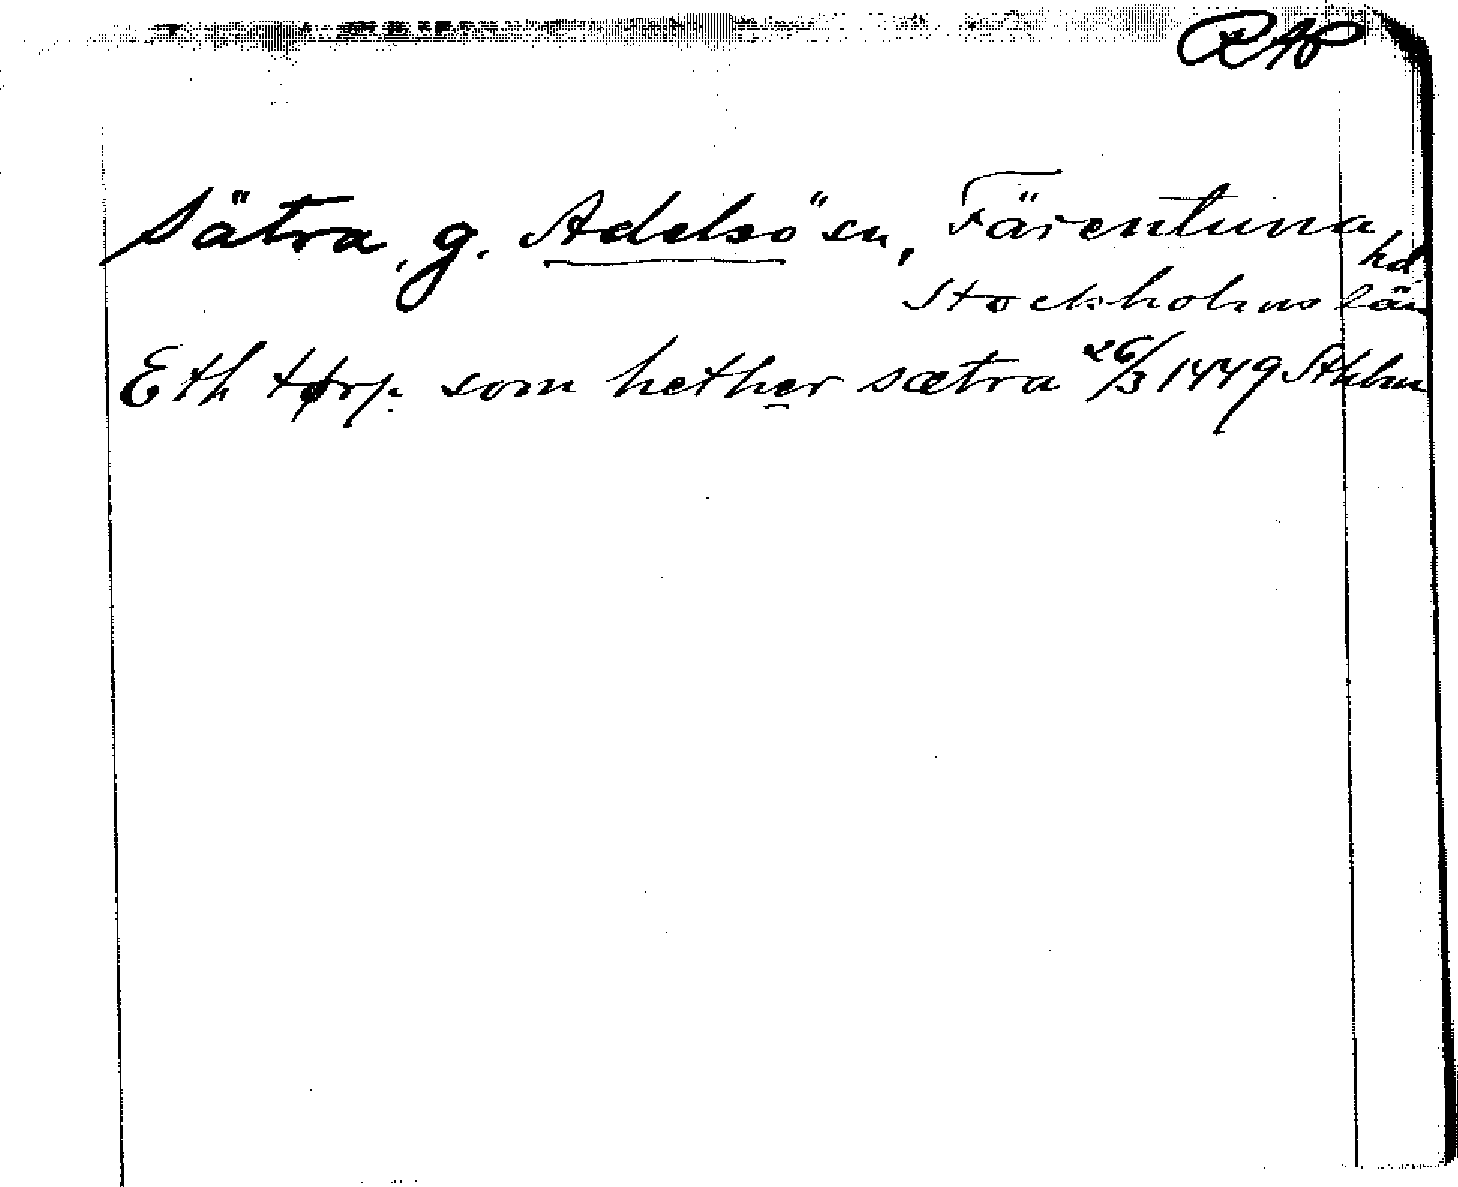 RAP
Sätra, g. Adelsö sn, Färentuna hd
Stockholms län
Eth tørp som hether sætra 26/3 1449 Sthlm